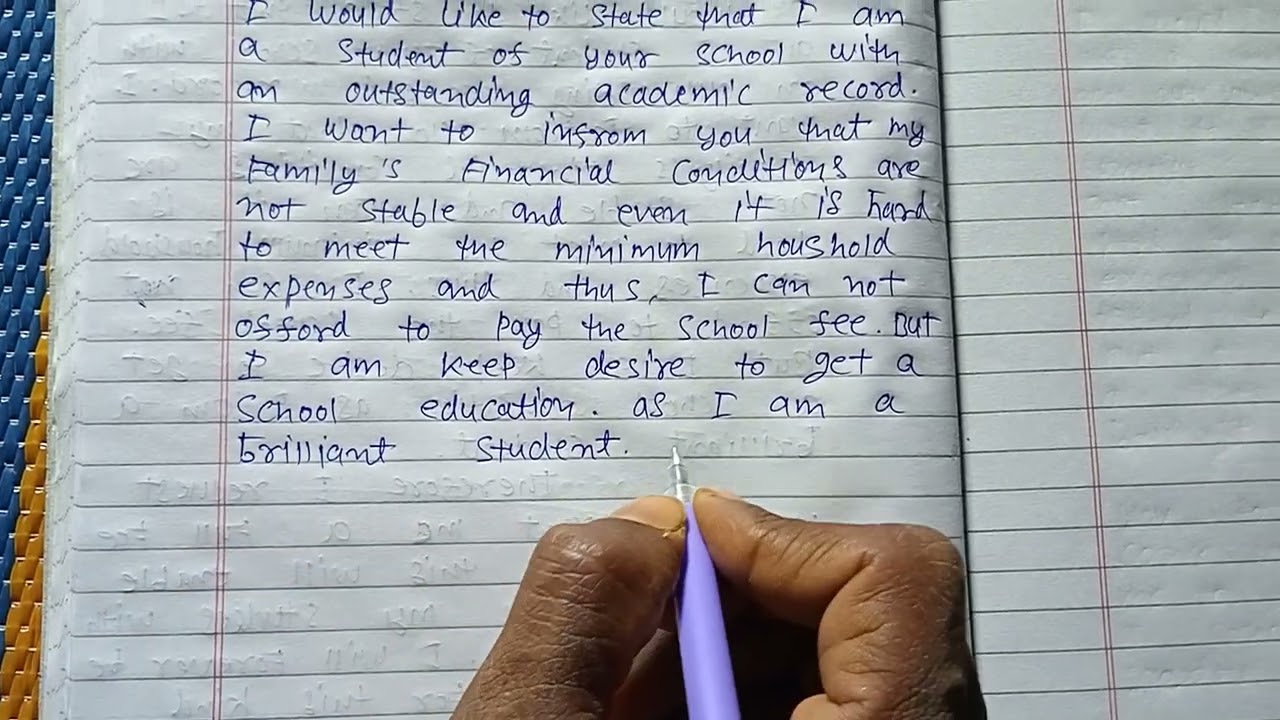 I would like to state that I am
a student of your school with
an outstanding academic record.
I want to infrom you that my
Family's Financial Conditions are
not stable and even it is hard
to meet the minimum houshold
expenses and thus, I can not
offord to pay the school fee. But
I am keep desire to get a
school education. as I am a
brilliant student.